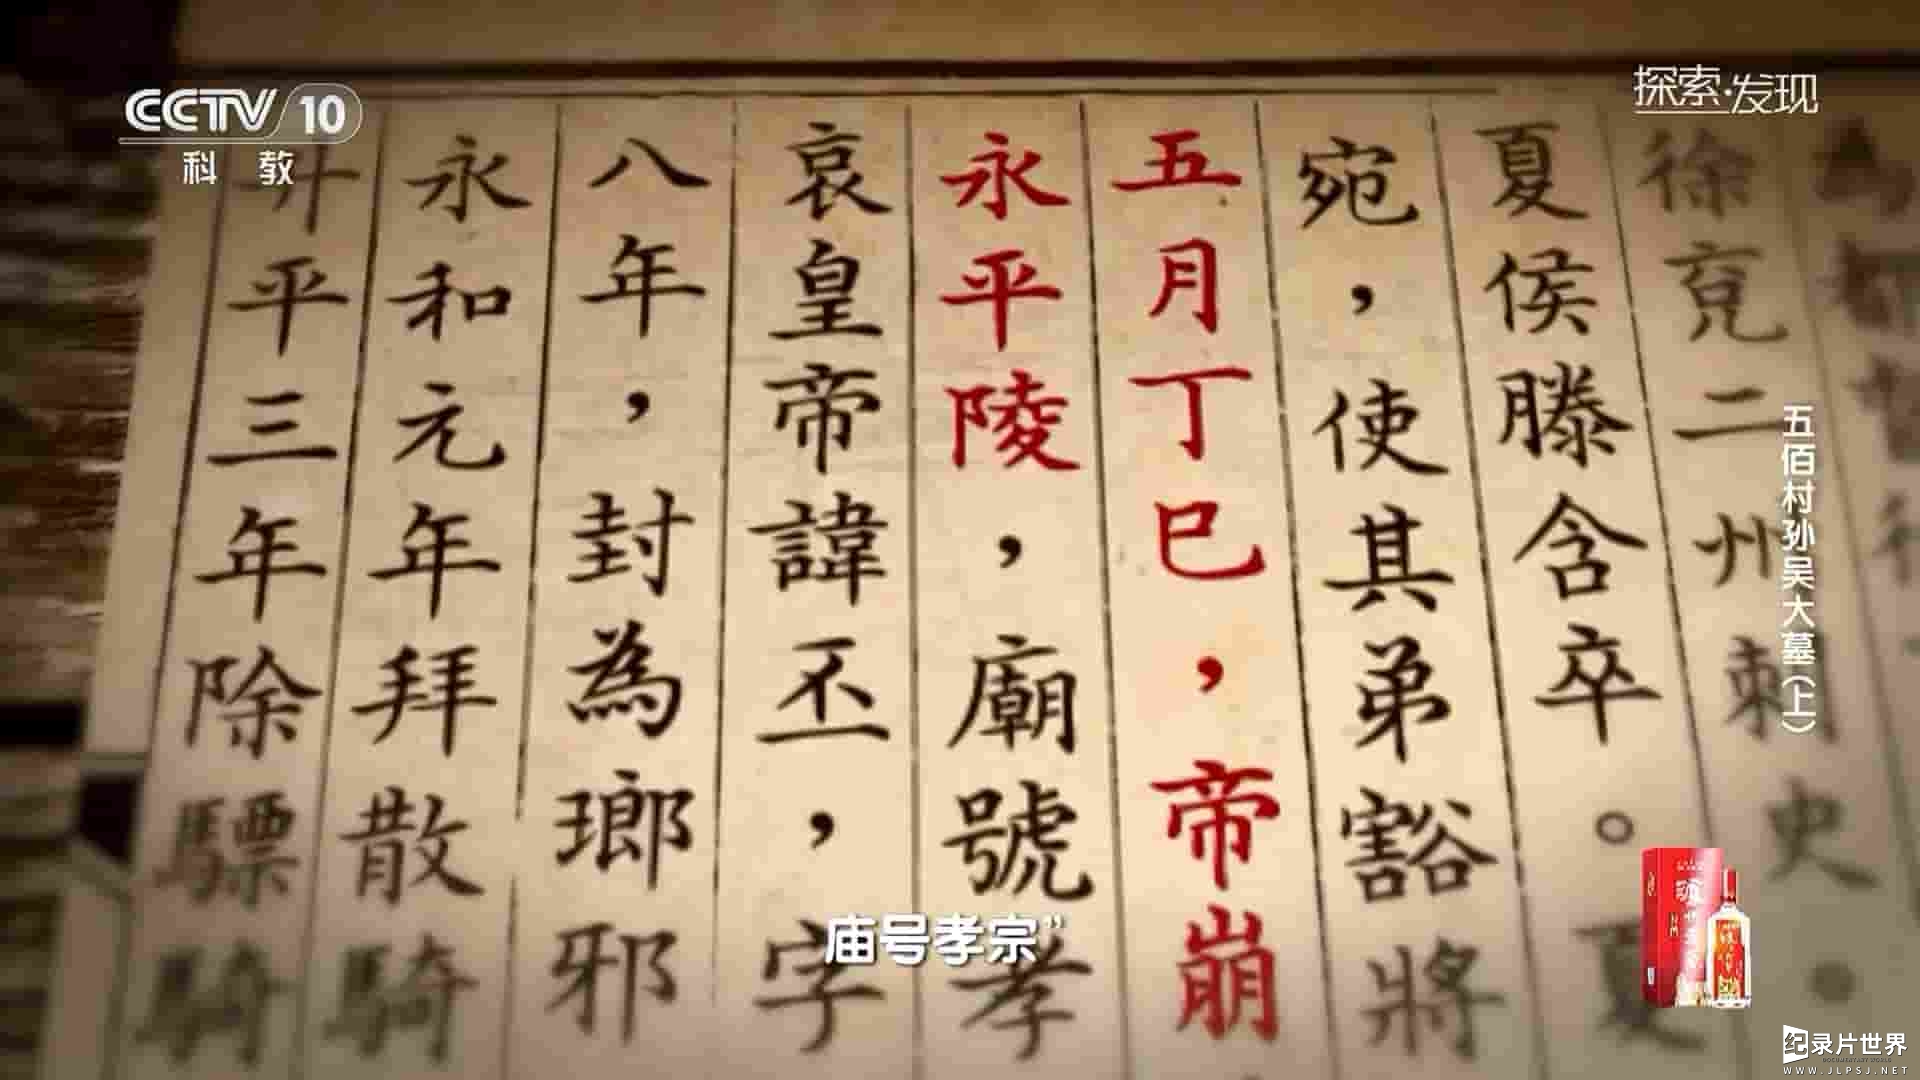 CCTV 10
科 教
探索·发现
徐兗二州刺史。
夏侯滕含卒。夏
宛，使其弟豁將
五月丁巳，帝崩
永平陵，廟號孝
哀皇帝諱丕，字
八年，封為瑯邪
永和元年拜散騎
升平三年除驃騎
五佰村孙吴大墓(上)
庙号孝宗”
纪录片世界
WWW.JLPSJ.NET